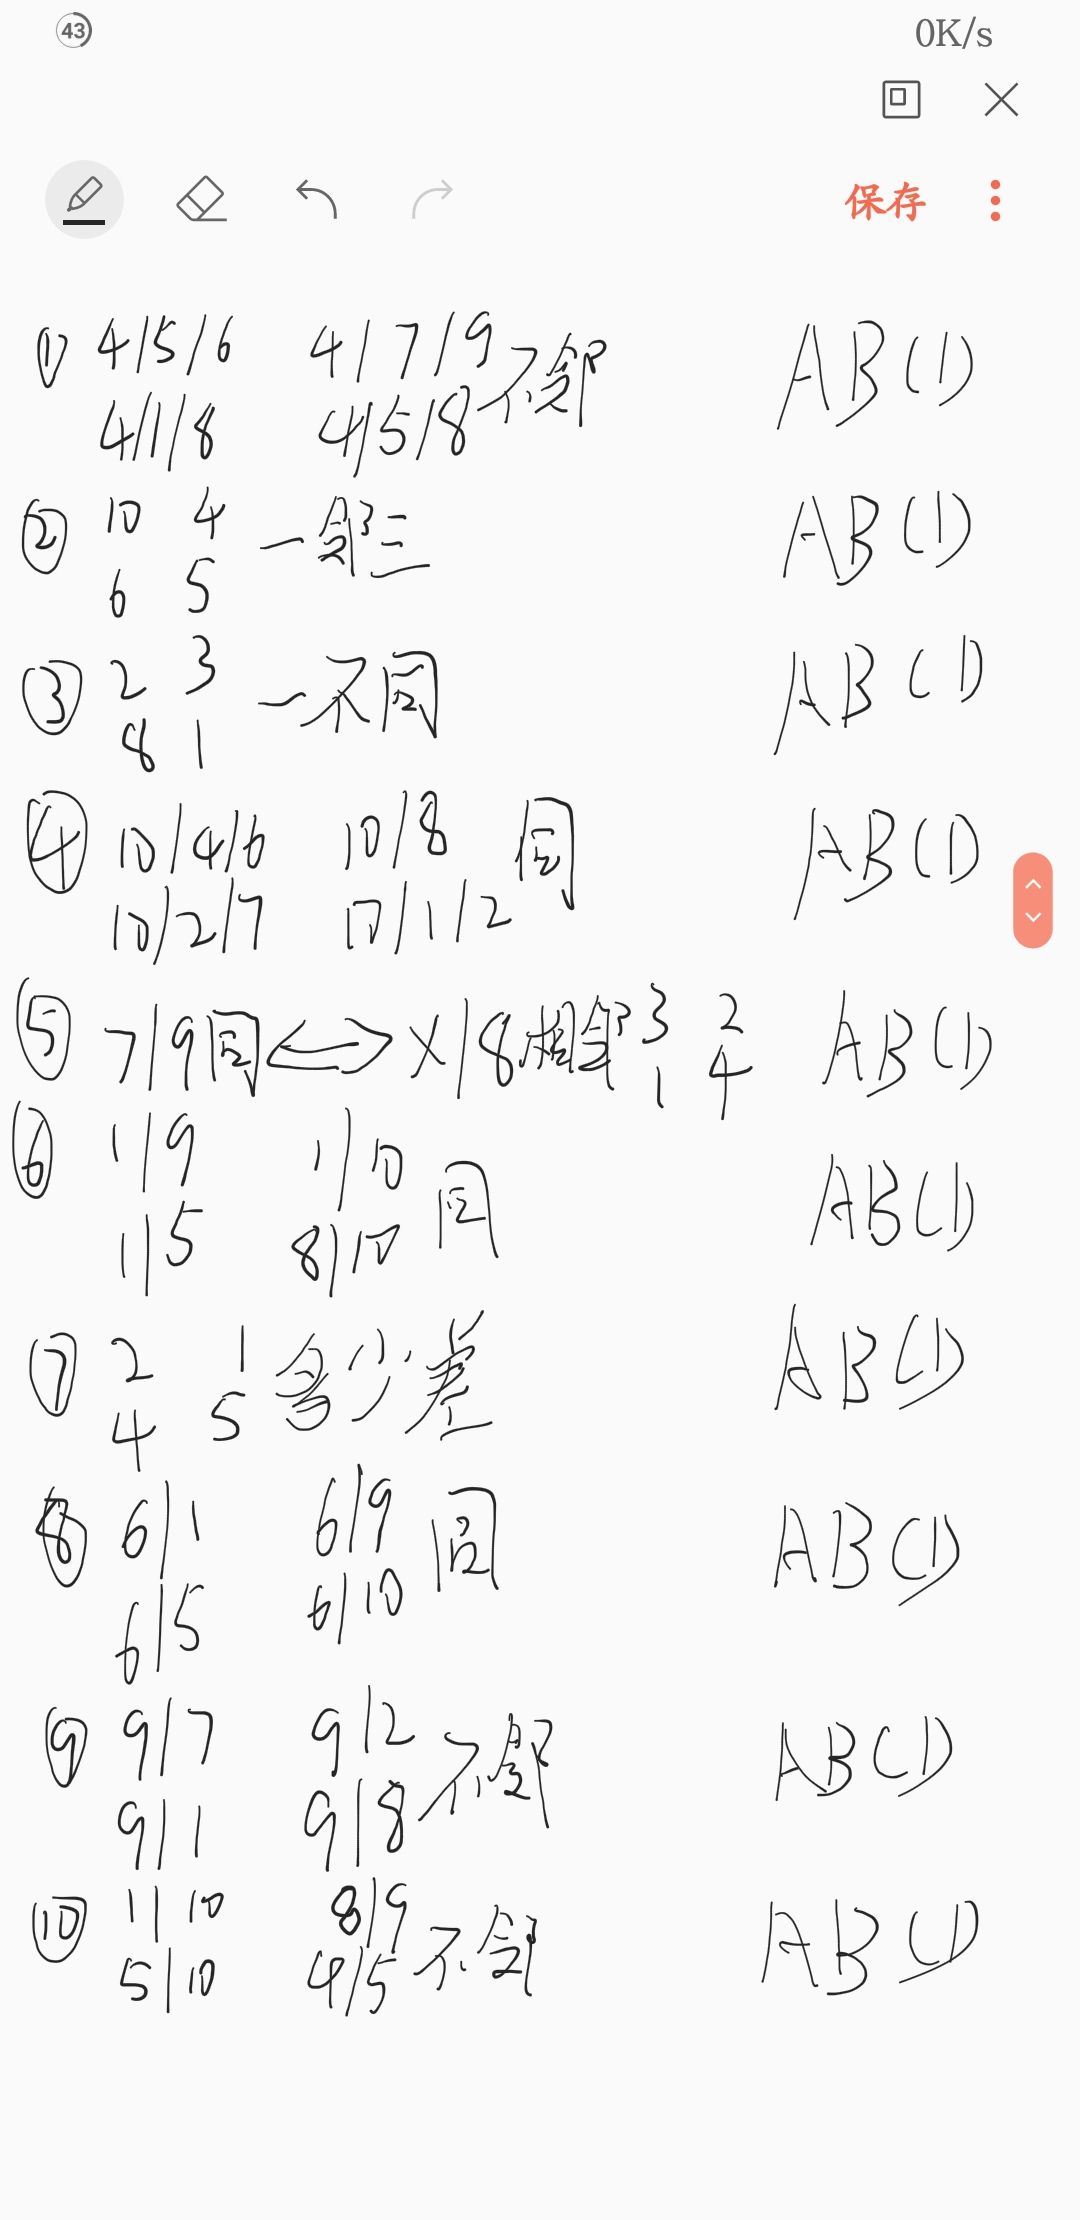 43 0K/s
保存
① 4/5/6 4/7/9 不邻 ABCD
4/1/8 4/5/8
② 10 4 一邻三 ABCD
6 5
③ 2 3 一不同 ABCD
8 1
④ 10/4/6 10/8 同 ABCD
10/2/7 10/1/2
⑤ 7/9同⟺X/8相邻 3 2 ABCD
1 4
⑥ 1/9 1/10 同 ABCD
1/5 8/10
⑦ 2 1 含少差 ABCD
4 5
⑧ 6/1 6/9 同 ABCD
6/5 6/10
⑨ 9/7 9/2 不邻 ABCD
9/1 9/8
⑩ 1/10 8/9 不邻 ABCD
5/10 4/5